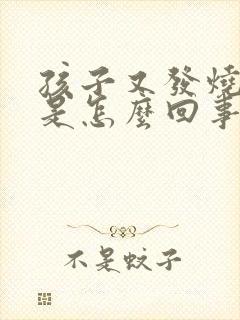 孩子又發燒
是怎麼回事
不是蚊子